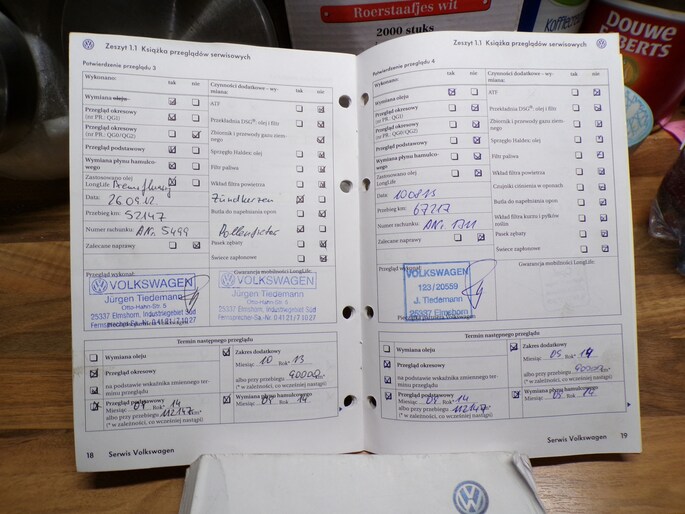 Roerstaafjes wit
2000 stuks
DOUWE
EGBERTS
Zeszyt 1.1 Książka przeglądów serwisowych
Potwierdzenie przeglądu 3
Wykonano: tak nie
Wymiana oleju
Przegląd okresowy
(nr PR.: QG1)
Przegląd okresowy
(nr PR.: QG0/QG2)
Przegląd podstawowy
Wymiana płynu hamulco-
wego
Zastosowano olej
LongLife
Data: 26.09.12
Przebieg km: 52147
Numer rachunku: ANr. 5499
Zalecane naprawy
Czynności dodatkowe - wy-
miana: tak nie
ATF
Przekładnia DSG®: olej i filtr
Zbiornik i przewody gazu ziem-
nego
Sprzęgło Haldex: olej
Filtr paliwa
Wkład filtra powietrza
Zündkerzen
Butla do napełniania opon
Pollenfilter
Pasek zębaty
Świece zapłonowe
Przegląd wykonał:
Gwarancja mobilności LongLife:
VOLKSWAGEN
Jürgen Tiedemann
Otto-Hahn-Str. 5
25337 Elmshorn, Industriegebiet Süd
Fernsprecher-Sa.-Nr. 0 41 21 / 7 10 27
VOLKSWAGEN
Jürgen Tiedemann
Otto-Hahn-Str. 5
25337 Elmshorn, Industriegebiet Süd
Fernsprecher-Sa.-Nr. 0 41 21 / 7 10 27
Termin następnego przeglądu
Wymiana oleju
Przegląd okresowy
na podstawie wskaźnika zmiennego ter-
minu przeglądu
Przegląd podstawowy
Miesiąc 09 Rok* 14
albo przy przebiegu 112147 km*
(* w zależności, co wcześniej nastąpi)
Zakres dodatkowy
Miesiąc 10 Rok* 13
albo przy przebiegu 90000 km*
(* w zależności, co wcześniej nastąpi)
Wymiana płynu hamulcowego
Miesiąc 09 Rok 14
18 Serwis Volkswagen
Zeszyt 1.1 Książka przeglądów serwisowych
Potwierdzenie przeglądu 4
Wykonano: tak nie
Wymiana oleju
Przegląd okresowy
(nr PR.: QG1)
Przegląd okresowy
(nr PR.: QG0/QG2)
Przegląd podstawowy
Wymiana płynu hamulco-
wego
Zastosowano olej
LongLife
Data:
Przebieg km: 67217
Numer rachunku: ANr. 1711
Zalecane naprawy
Czynności dodatkowe - wy-
miana: tak nie
ATF
Przekładnia DSG®: olej i filtr
Zbiornik i przewody gazu ziem-
nego
Sprzęgło Haldex: olej
Filtr paliwa
Wkład filtra powietrza
Czujniki ciśnienia w oponach
Butla do napełniania opon
Wkład filtra kurzu i pyłków
roślin
Pasek zębaty
Świece zapłonowe
Przegląd wykonał:
Gwarancja mobilności LongLife:
VOLKSWAGEN
123 / 20559
J. Tiedemann
25337 Elmshorn
Termin następnego przeglądu
Wymiana oleju
Przegląd okresowy
na podstawie wskaźnika zmiennego ter-
minu przeglądu
Przegląd podstawowy
Miesiąc 09 Rok* 14
albo przy przebiegu 112147 km*
(* w zależności, co wcześniej nastąpi)
Zakres dodatkowy
Miesiąc 09 Rok* 14
albo przy przebiegu 90000 km*
(* w zależności, co wcześniej nastąpi)
Wymiana płynu hamulcowego
Miesiąc 09 Rok 14
Serwis Volkswagen 19